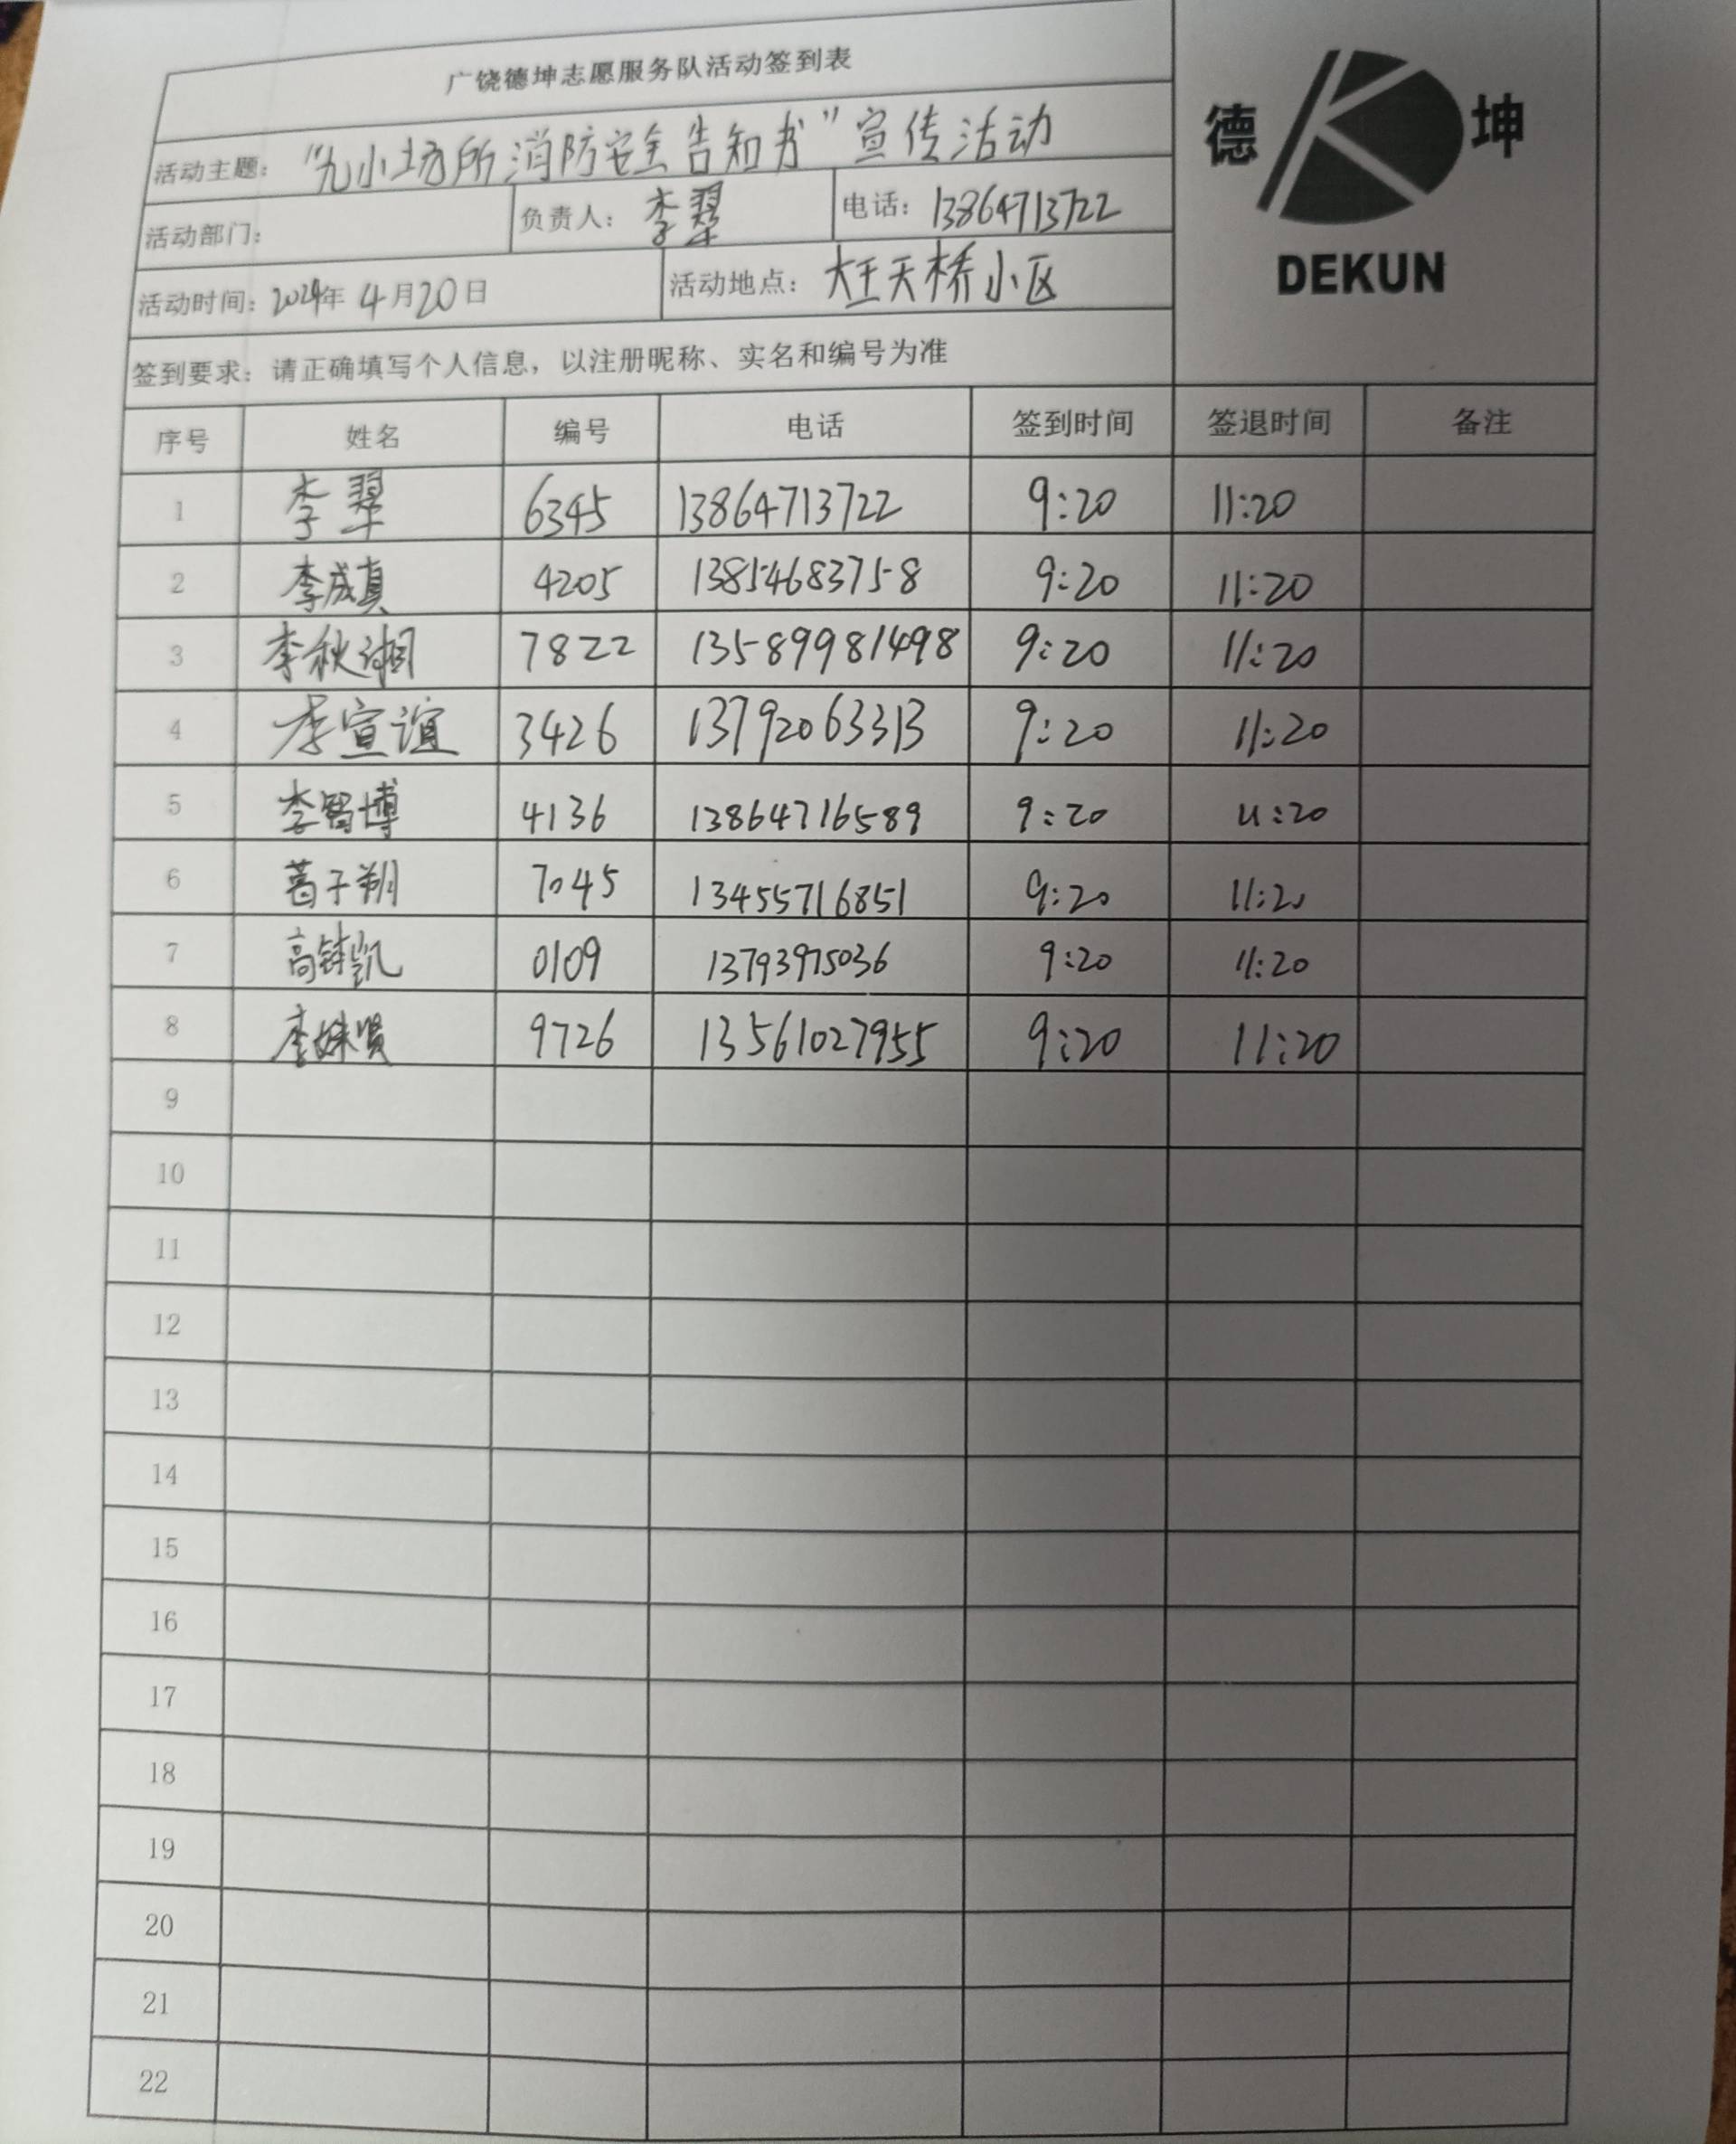 广饶德坤志愿服务队活动签到表
德 坤
DEKUN
活动主题：“九小场所消防安全告知书”宣传活动
活动部门： 负责人：李翠 电话：13864713722
活动时间：2024年4月20日 活动地点：大王天桥小区
签到要求：请正确填写个人信息，以注册昵称、实名和编号为准
序号 姓名 编号 电话 签到时间 签退时间 备注
1 李翠 6345 13864713722 9:20 11:20
2 李成真 4205 13854683758 9:20 11:20
3 李秋湘 7822 13589981498 9:20 11:20
4 李宣谊 3426 13792063313 9:20 11:20
5 李智博 4136 13864716589 9:20 11:20
6 葛子朔 7045 13455716851 9:20 11:20
7 高 凯 0109 13793975036 9:20 11:20
8 李姝贤 9726 13561027955 9:20 11:20
9
10
11
12
13
14
15
16
17
18
19
20
21
22